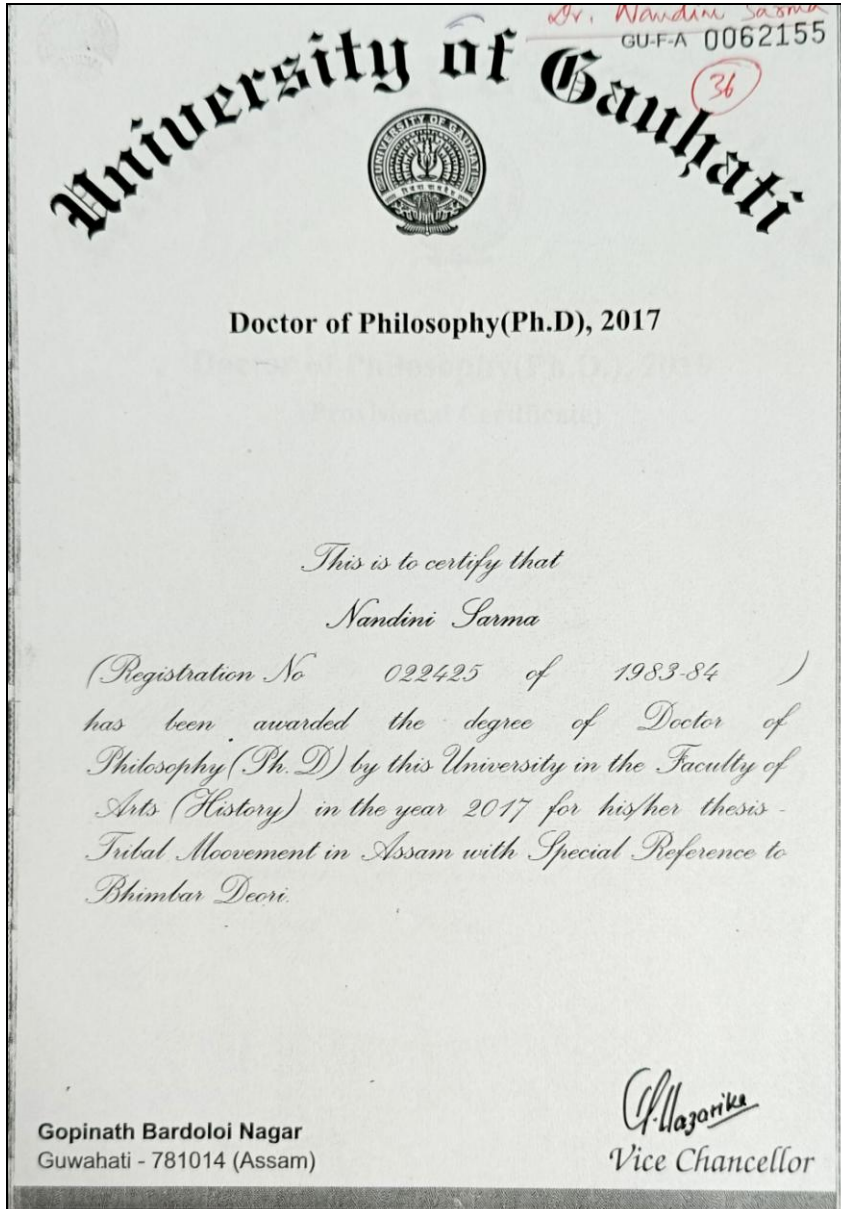 Dr. Nandini Sarma
GU-F-A 0062155
36
University of Gauhati
UNIVERSITY OF GAUHATI
Doctor of Philosophy(Ph.D), 2017
Doctor of Philosophy(Ph.D.), 2019
(Provisional Certificate)
This is to certify that
Nandini Sarma
(Registration No 022425 of 1983-84 )
has been awarded the degree of Doctor of
Philosophy (Ph. D) by this University in the Faculty of
Arts (History) in the year 2017 for his/her thesis -
Tribal Moovement in Assam with Special Reference to
Bhimbar Deori.
G. Hazarika
Gopinath Bardoloi Nagar
Guwahati - 781014 (Assam)
Vice Chancellor